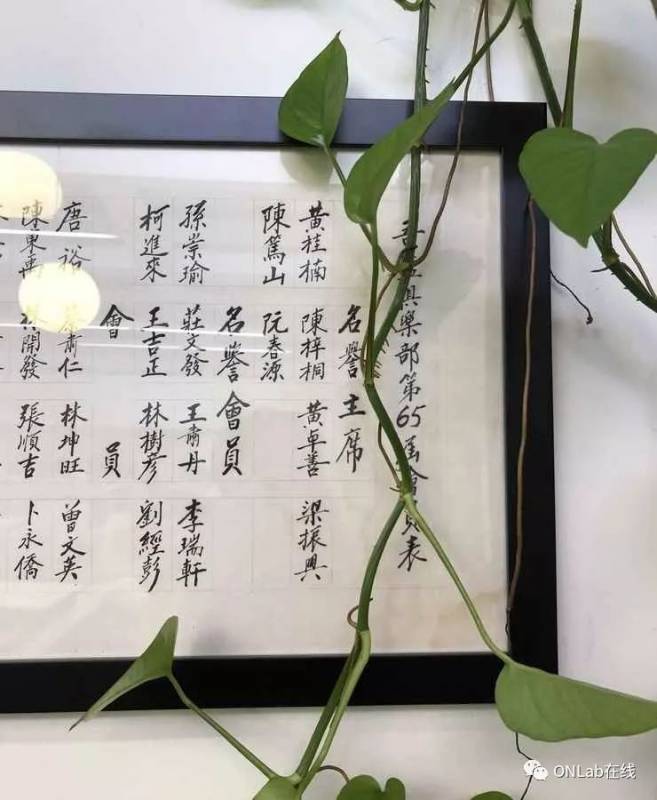 吾廬俱樂部第65屆會員表
名譽主席
黃桂楠 陳梓桐 黃卓善 梁振興
陳篤山 阮春源
名譽會員
孫崇瑜 莊文發 王肅丹 李瑞軒
柯進來 王吉正 林樹彥 劉經彭
會員
唐裕 肅仁 林坤旺 曾文英
陳東 開發 張順吉 卜永僑
ONLab在线